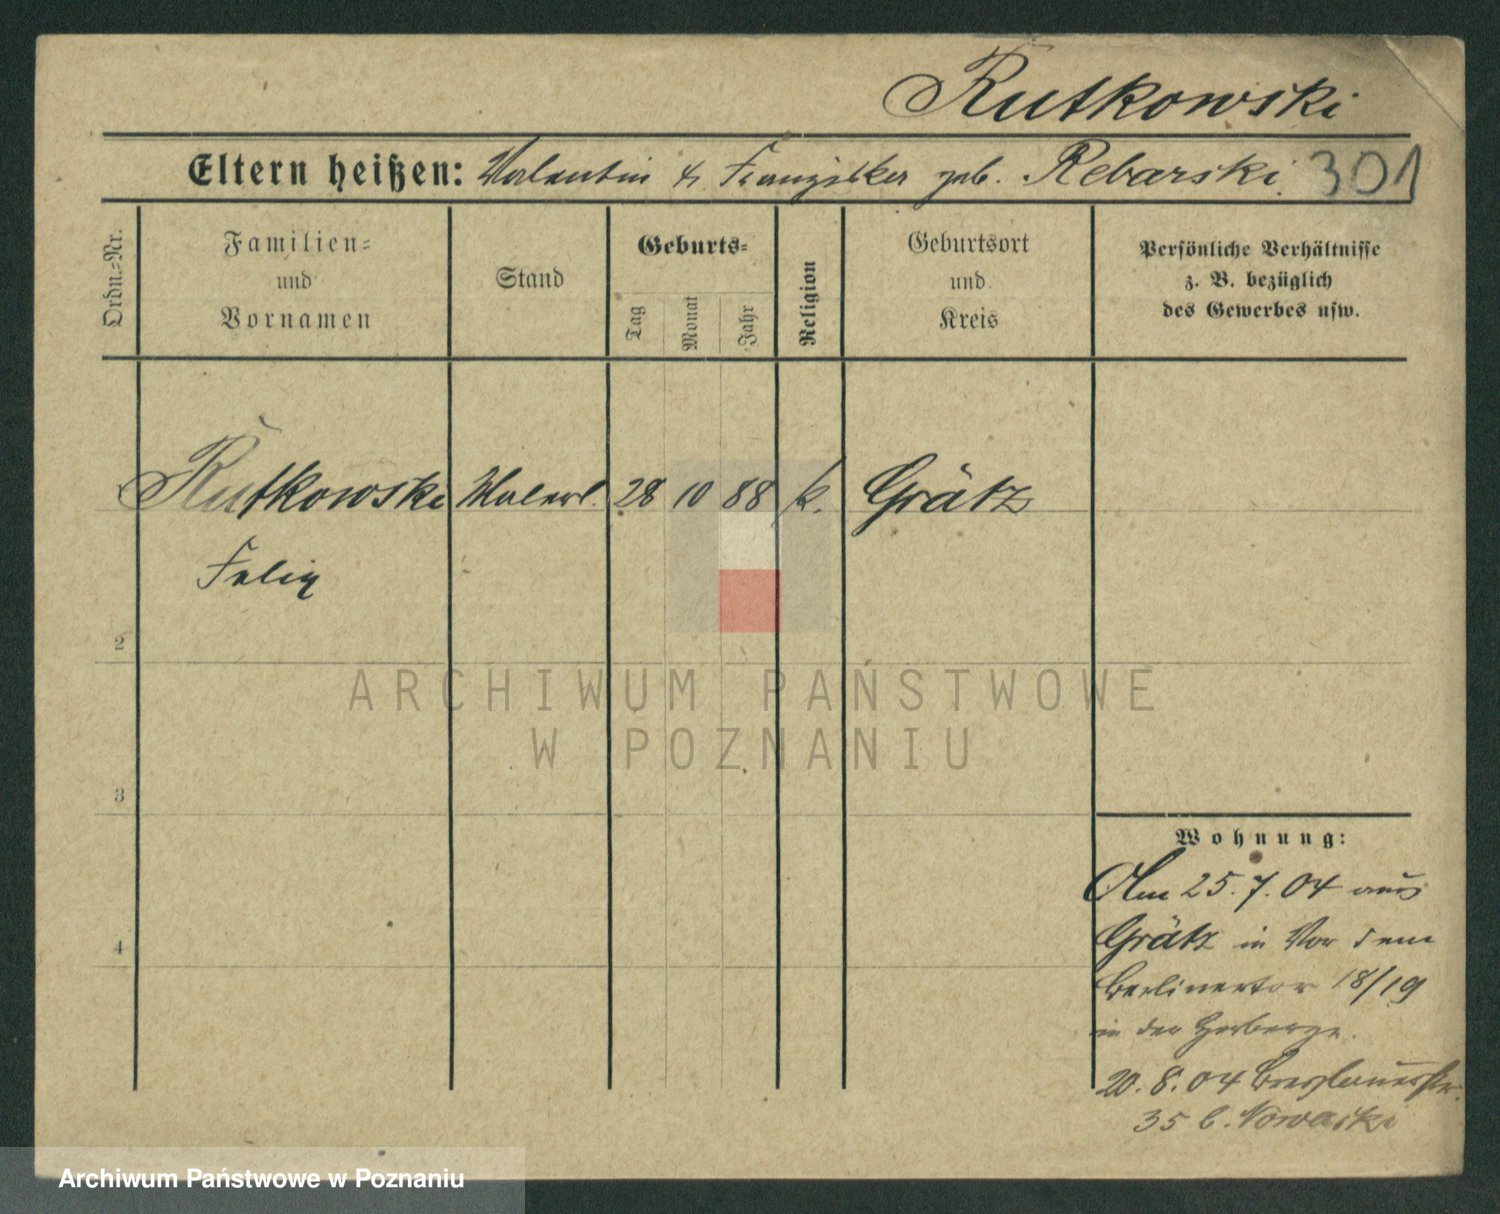 Rutkowski
Eltern heißen: Valentin & Franziska geb. Rebarski 301
Ordn.-Nr.
Familien-
und
Vornamen
Stand
Geburts-
Tag
Monat
Jahr
Religion
Geburtsort
und
Kreis
Persönliche Verhältnisse
z. B. bezüglich
des Gewerbes usw.
Rutkowski Malerl. 28 10 88 k. Grätz
Felix
2
3
4
Wohnung:
Am 25.7.04 aus
Grätz in Vor dem
Berlinertor 18/19
in der Herberge.
20.8.04 Breslauerstr.
35 b. Nowaski
ARCHIWUM PAŃSTWOWE
W POZNANIU
Archiwum Państwowe w Poznaniu